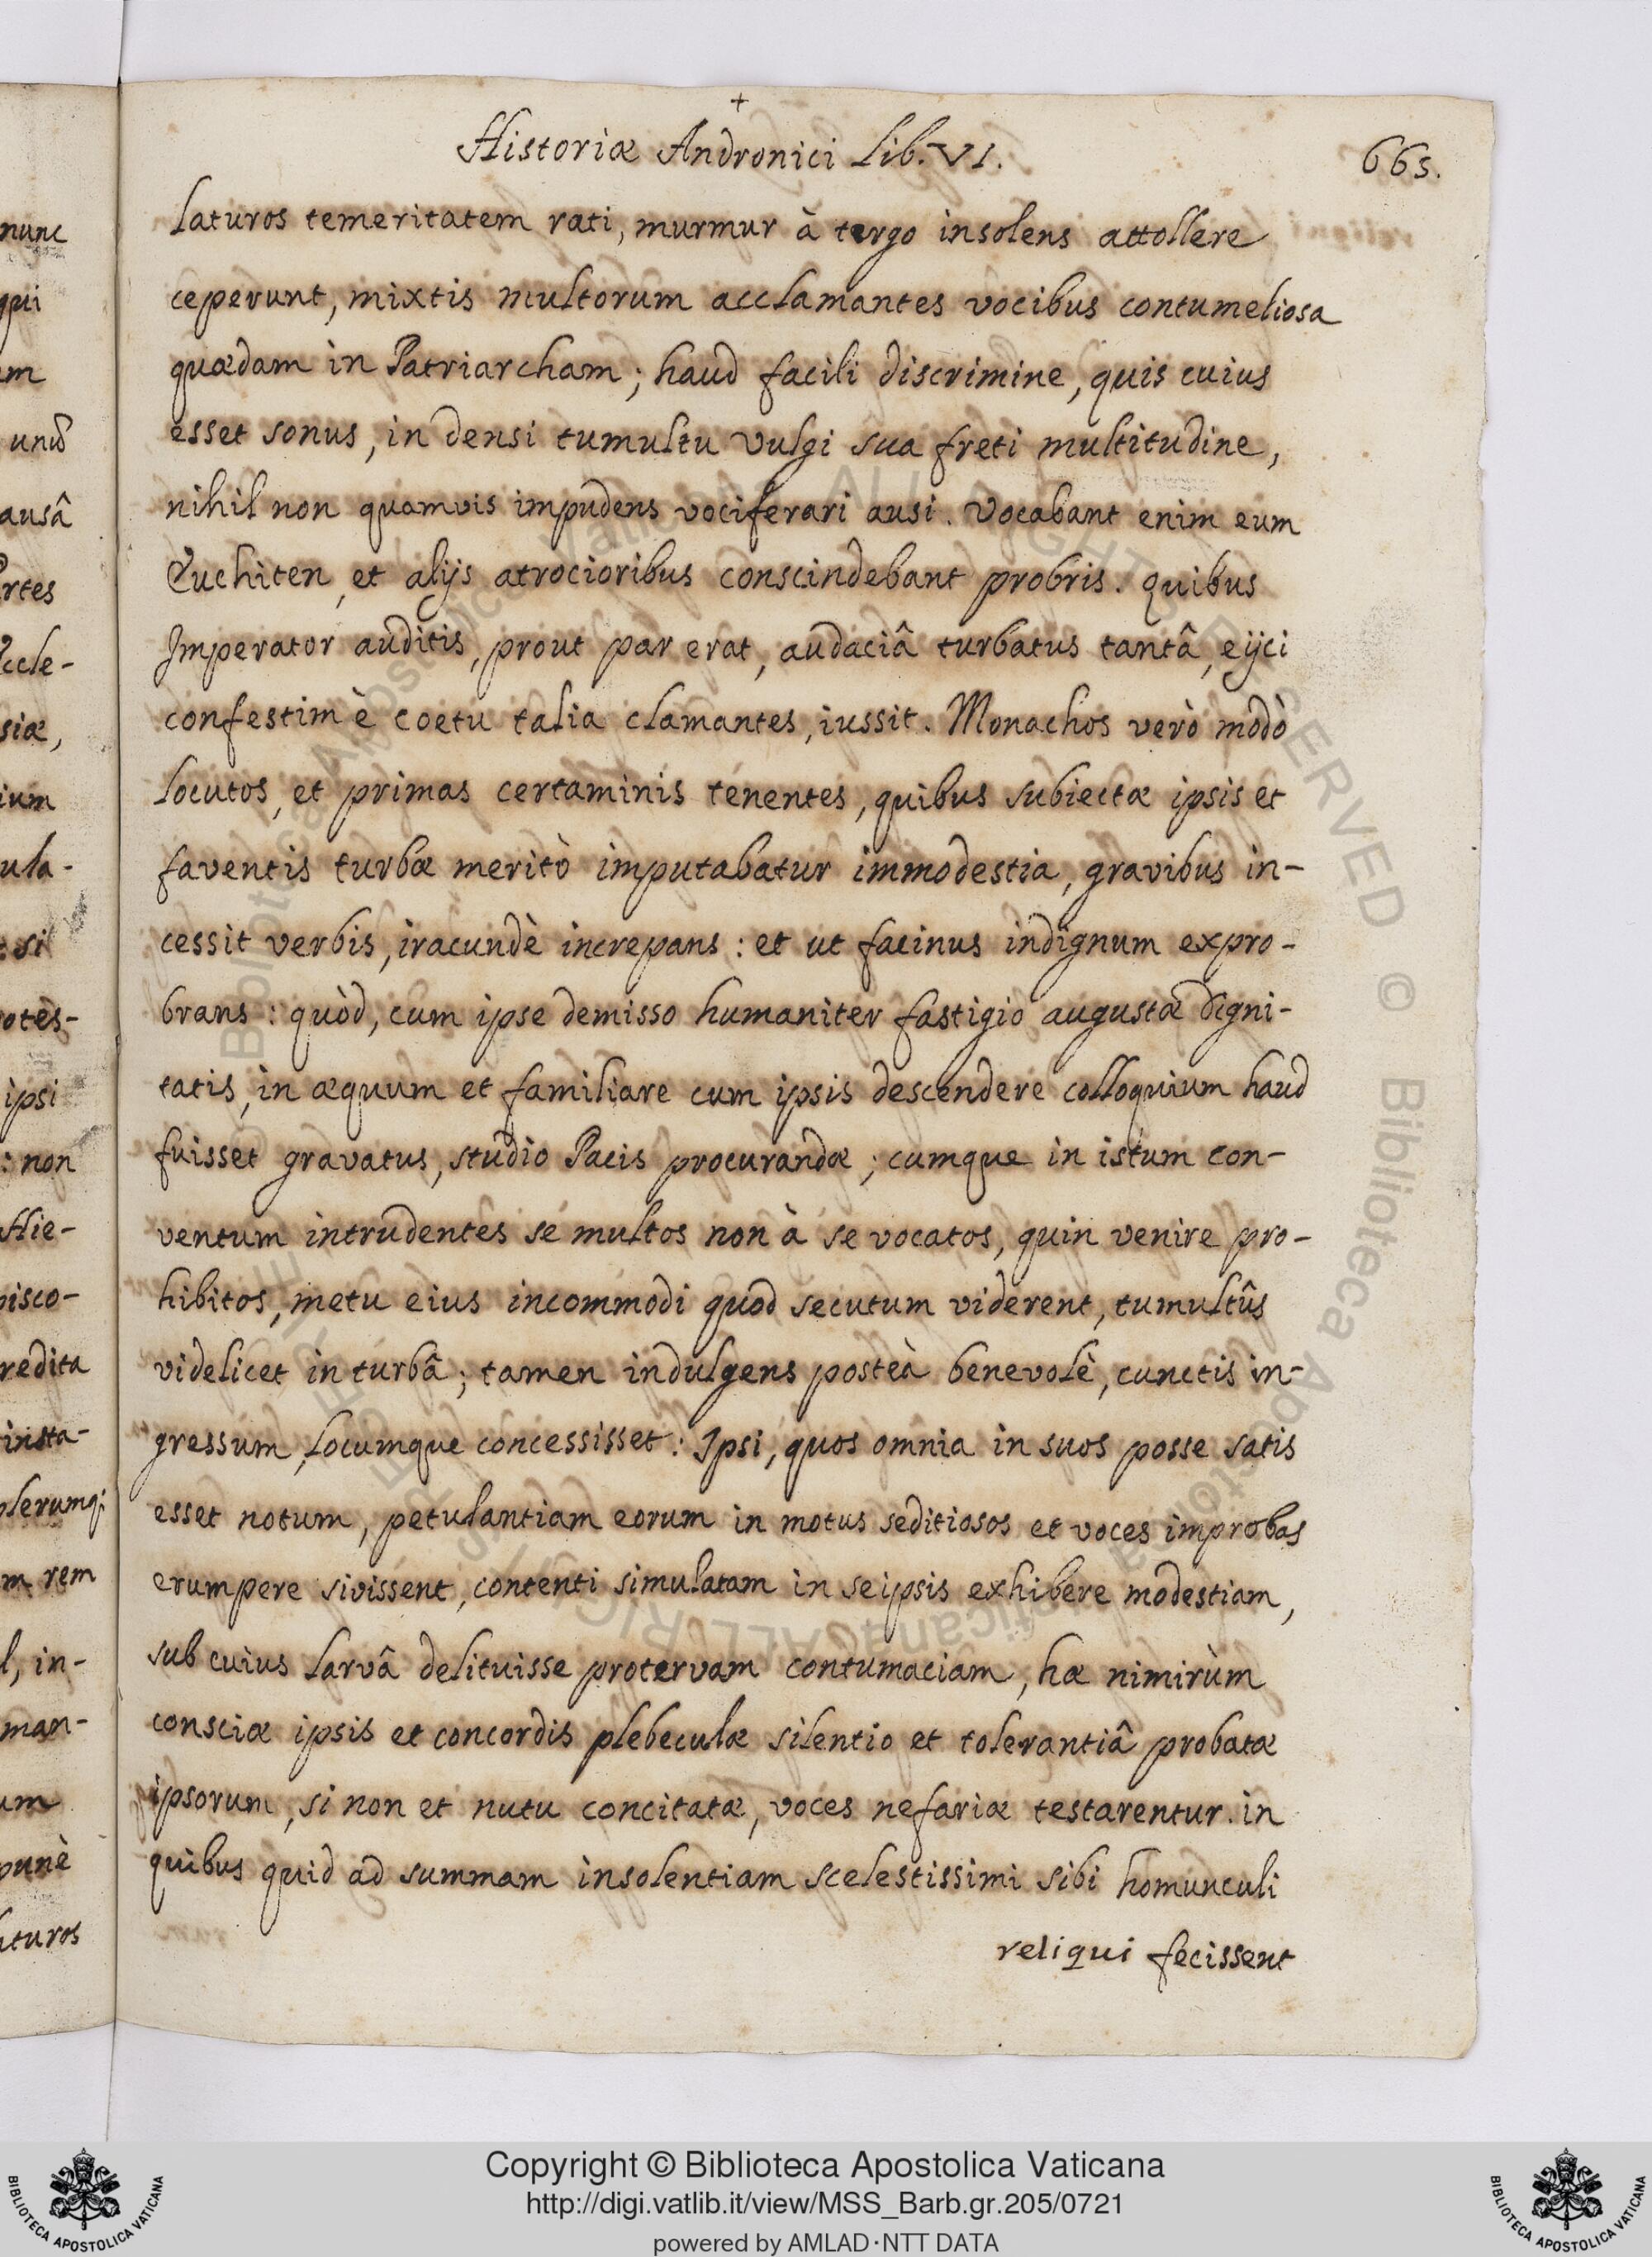 +
Historiæ Andronici Lib. VI.
665.
laturos temeritatem rati, murmur à tergo insolens attollere
ceperunt, mixtis multorum acclamantes vocibus contumeliosa
quædam in Patriarcham; haud facili discrimine, quis cuius
esset sonus, in densi tumultu vulgi sua freti multitudine,
nihil non quamvis impudens vociferari ausi. Vocabant enim eum
Euchiten, et alijs atrocioribus conscindebant probris. quibus
Imperator auditis, prout par erat, audaciâ turbatus tantâ, eijci
confestim è coetu talia clamantes, iussit. Monachos verò modò
locutos, et primas certaminis tenentes, quibus subiectæ ipsis et
faventis turbæ meritò imputabatur immodestia, gravibus in-
cessit verbis, iracundè increpans: et ut facinus indignum expro-
brans: quòd, cum ipse demisso humaniter fastigio augustæ digni-
tatis, in æquum et familiare cum ipsis descendere colloquium haud
fuisset gravatus, studio Pacis procurandæ; cumque in istum con-
ventum intrudentes se multos non à se vocatos, quin venire pro-
hibitos, metu eius incommodi quod secutum viderent, tumultûs
videlicet in turbâ; tamen indulgens posteà benevolè, cunctis in-
gressum, locumque concessisset: Ipsi, quos omnia in suos posse satis
esset notum, petulantiam eorum in motus seditiosos et voces improbas
erumpere sivissent, contenti simulatam in seipsis exhibere modestiam,
sub cuius larvâ delituisse protervam contumaciam, hæ nimirùm
consciæ ipsis et concordis plebeculæ silentio et tolerantiâ probatæ
ipsorum, si non et nutu concitatæ, voces nefariæ testarentur. in
quibus quid ad summam insolentiam scelestissimi sibi homunculi
reliqui fecissent
nunc
qui
ausâ
siæ,
ula-
si
ipsi
: non
Hie-
isco-
redita
insta-
rem
l, in-
man-
turos
© Biblioteca Apostolica Vaticana ALL RIGHTS RESERVED
Copyright © Biblioteca Apostolica Vaticana
http://digi.vatlib.it/view/MSS_Barb.gr.205/0721
powered by AMLAD·NTT DATA
BIBLIOTECA APOSTOLICA VATICANA
BIBLIOTECA APOSTOLICA VATICANA